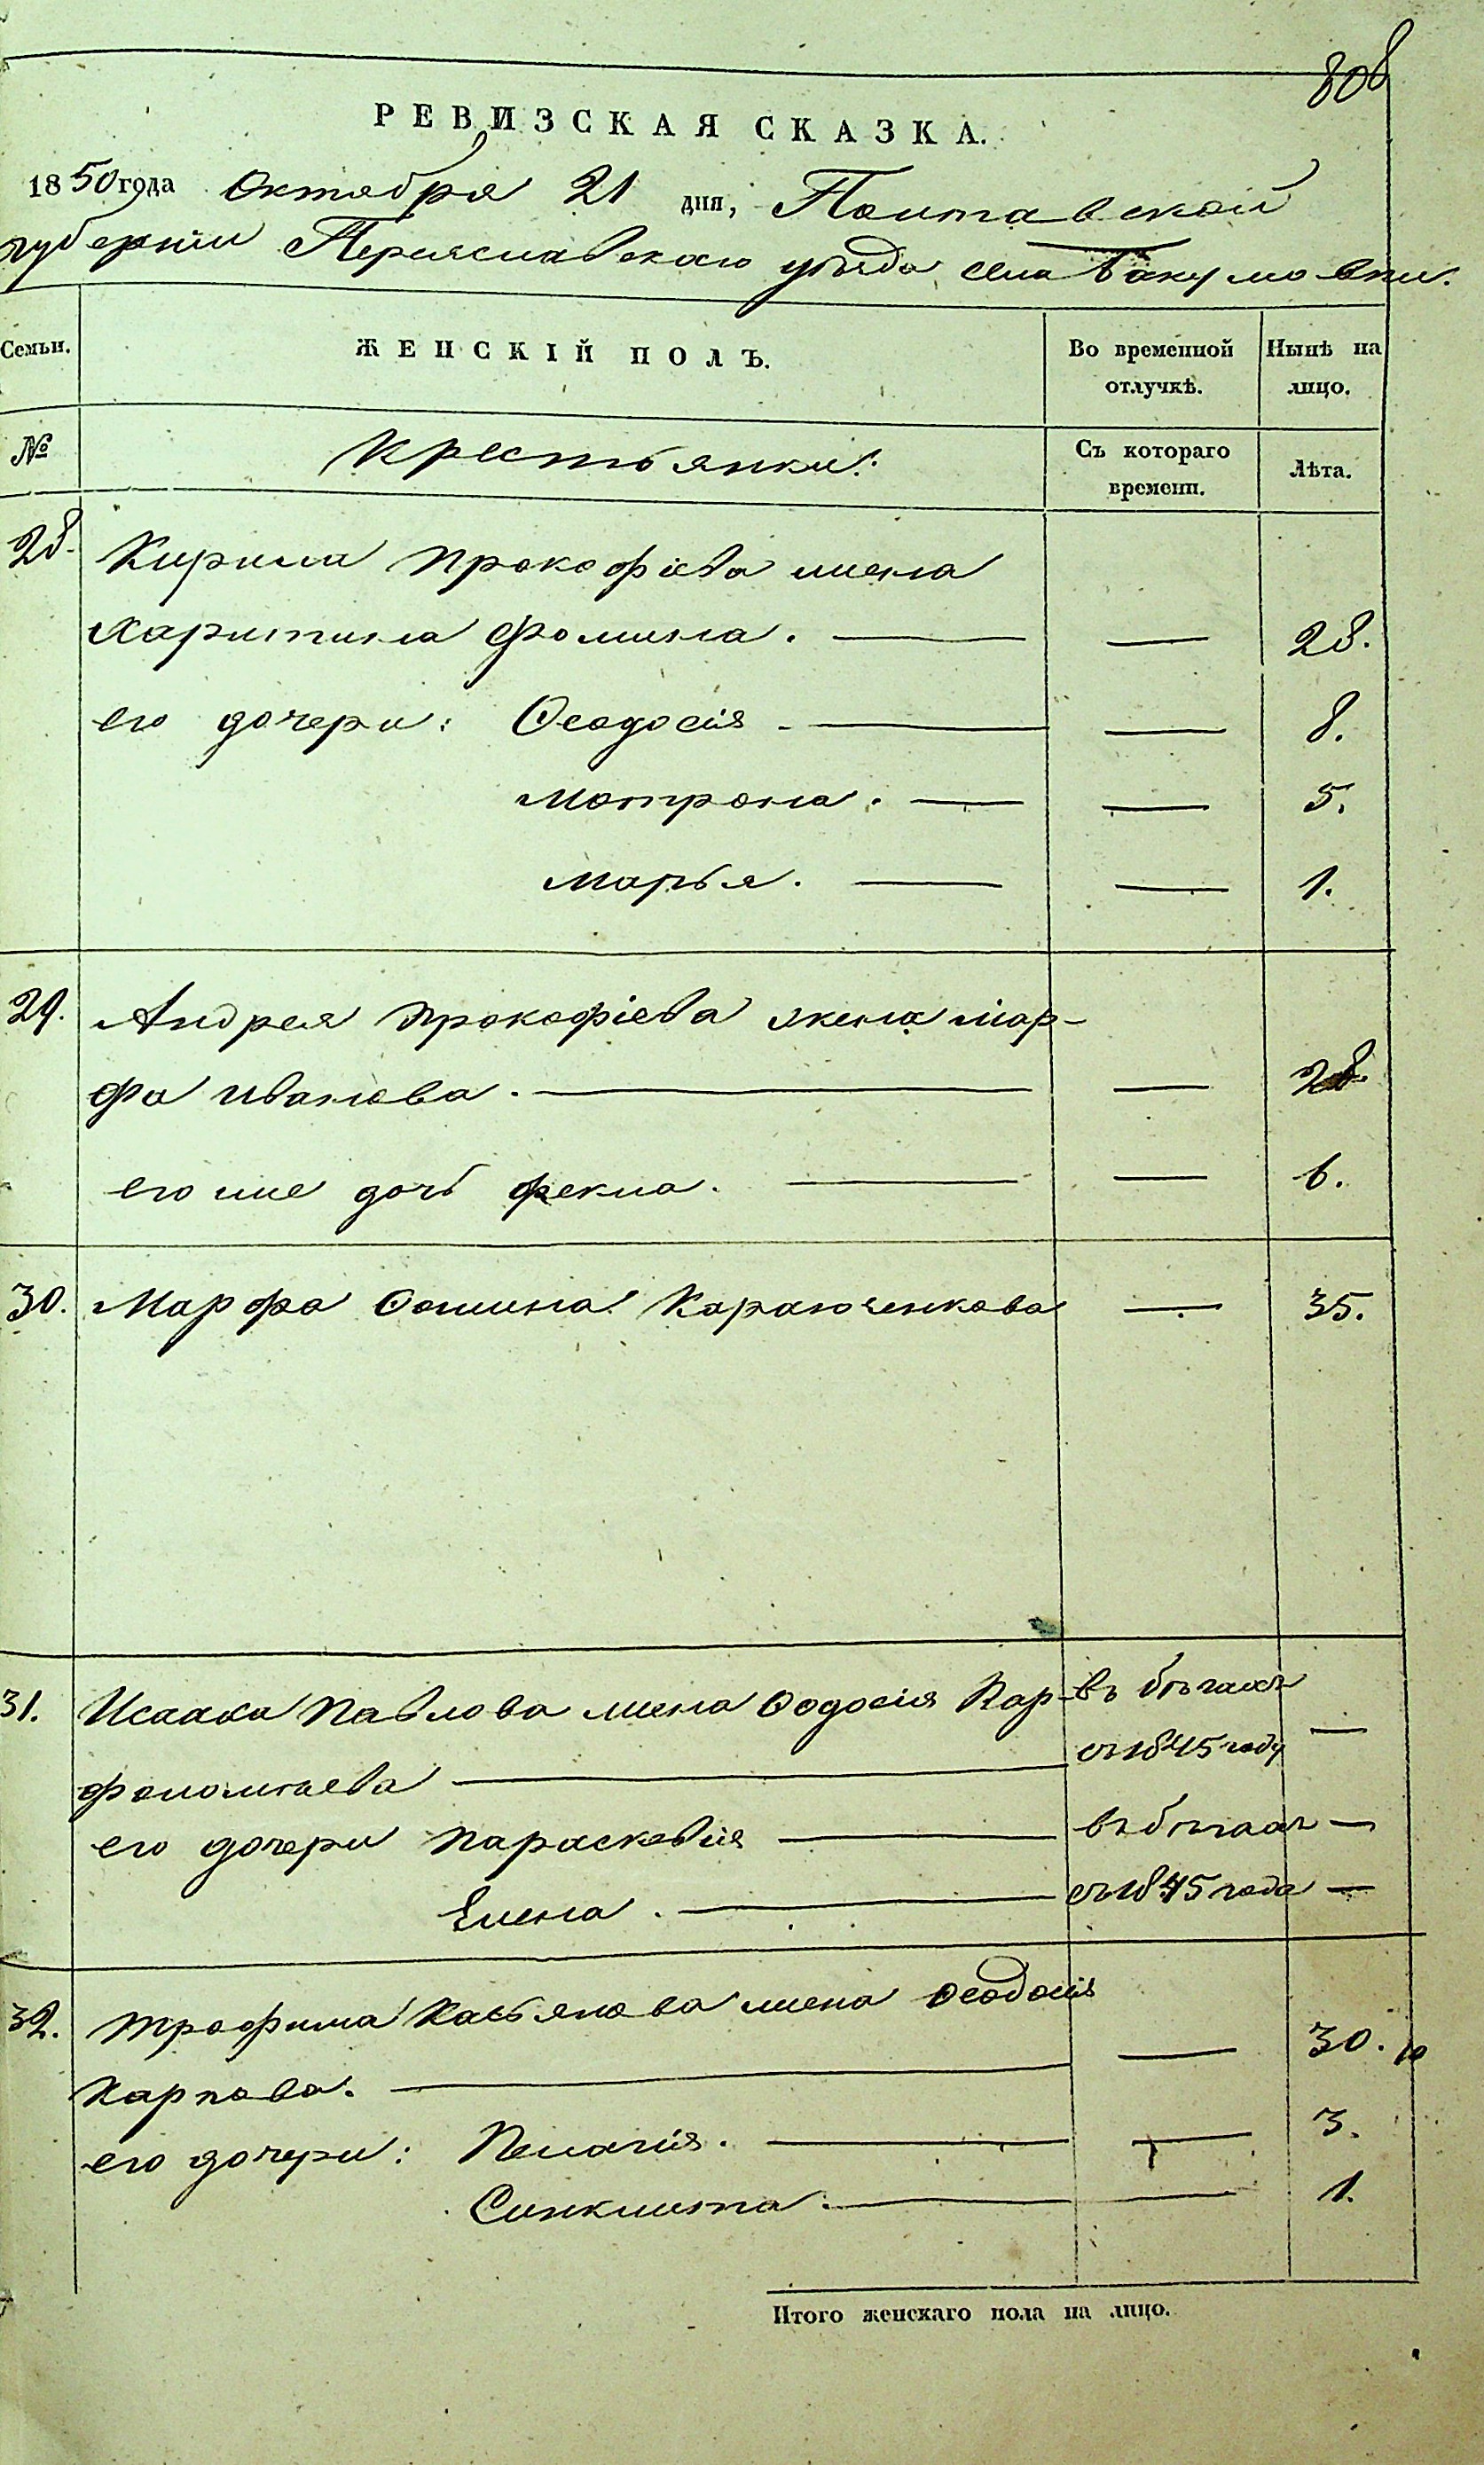 808
РЕВИЗСКАЯ СКАЗКА.
1850 года Октября 21 дня, Полтавской
губерніи Переяславскаго уѣзда села Бакумовки.
Семьи. ЖЕНСКІЙ ПОЛЪ. Во временной отлучкѣ. Нынѣ на лицо.
№ Крестьянки: Съ котораго времени. Лѣта.
28. Кирила Прокофіева жена
Харитина Фомина. — — 28.
его дочери: Ѳеодосія — — 8.
Мотрона. — — 5.
Марья. — — 1.
29. Андрея Прокофіева жена Мар-
фа Иванова. — — 28.
его же дочь Фекла. — — 6.
30. Марфа Фомина — 35.
31. Исаака Павлова жена Ѳеодосія Вар- въ бѣгахъ
фоломѣева — съ 1845 году —
его дочери Параскевія — въ бѣгахъ —
Елена. — съ 1845 года —
32. Трофима Касьянова жена Ѳеодосія
Карпова. — — 30.
его дочери: Пелагія. — — 3.
Синклита. — — 1.
Итого женскаго пола на лицо.